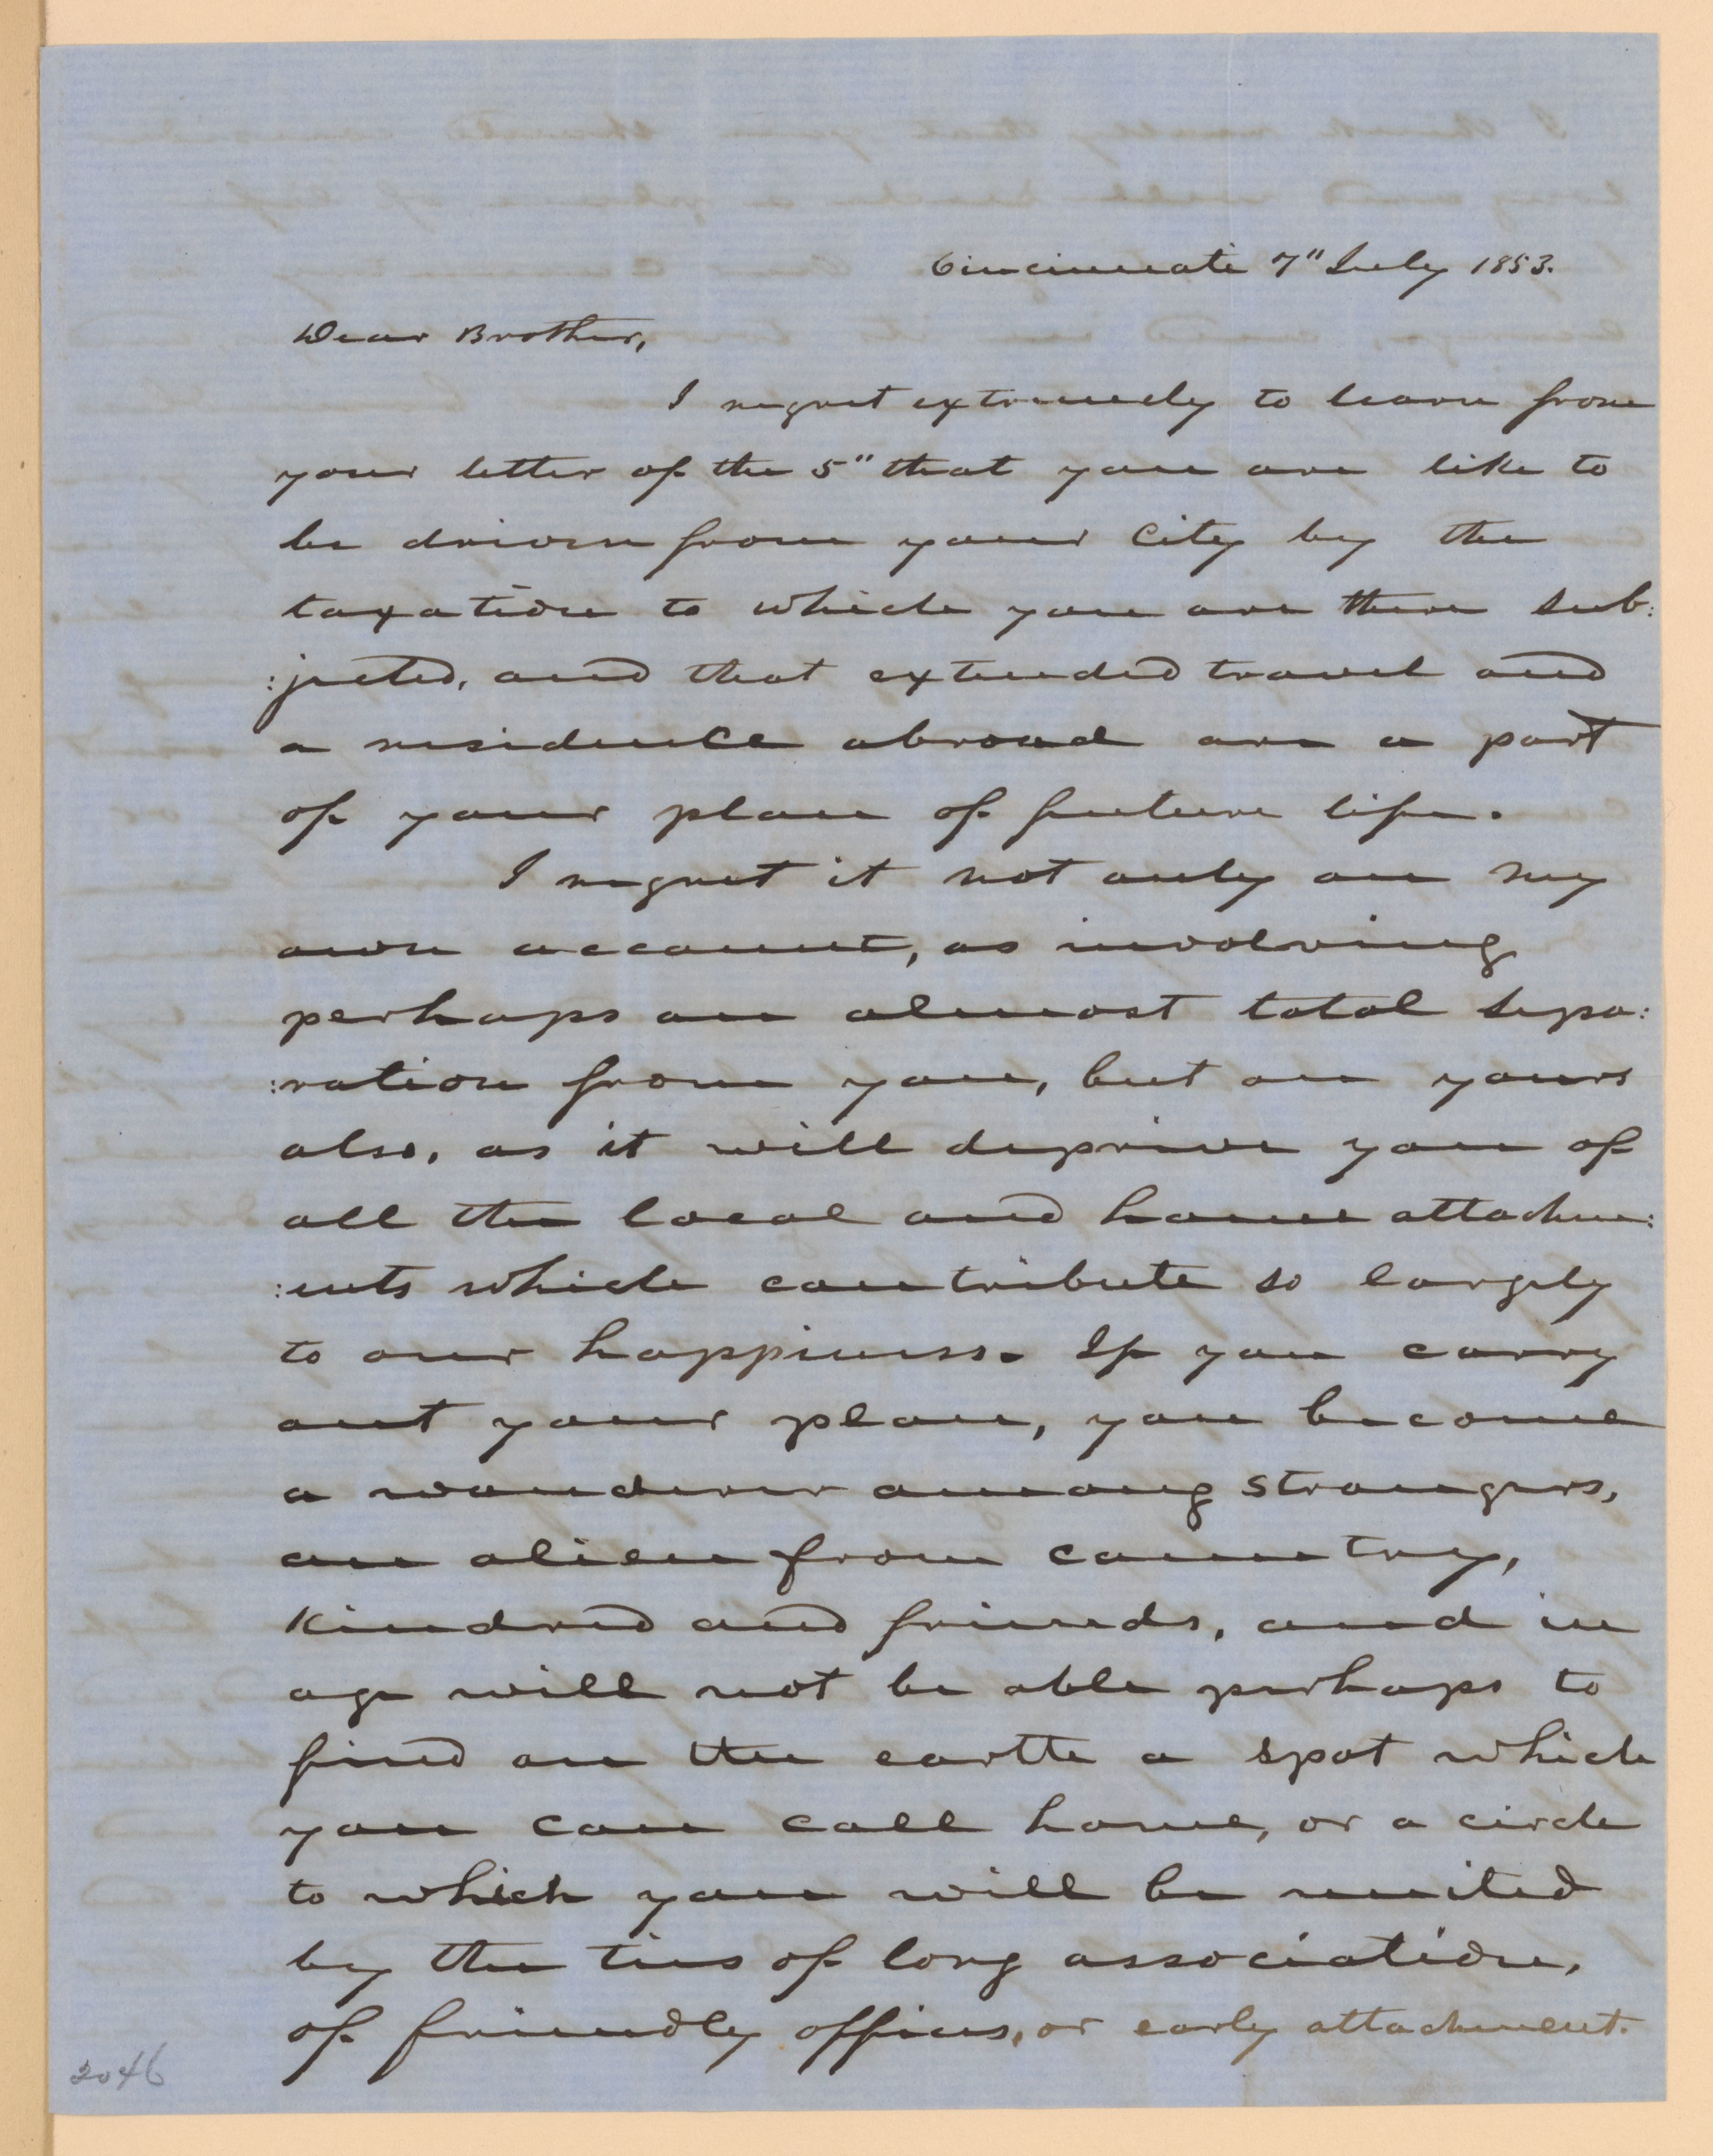 Cincinnati 7" July 1853.
Dear Brother,
I regret extremely to learn from
your letter of the 5" that you are like to
be driven from your City by the
taxation to which you are there sub:
:jected, and that extended travel and
a residence abroad are a part
of your plan of future life.
I regret it not only on my
own account, as involving
perhaps an almost total sepa:
:ration from you, but on yours
also, as it will deprive you of
all the local and home attachm:
:ents which contribute so largely
to our happiness. If you carry
out your plan, you become
a wanderer among strangers,
an alien from country,
kindred and friends, and in
age will not be able perhaps to
find on the earth a spot which
you can call home, or a circle
to which you will be united
by the ties of long association,
of friendly offices, or early attachment.
2046